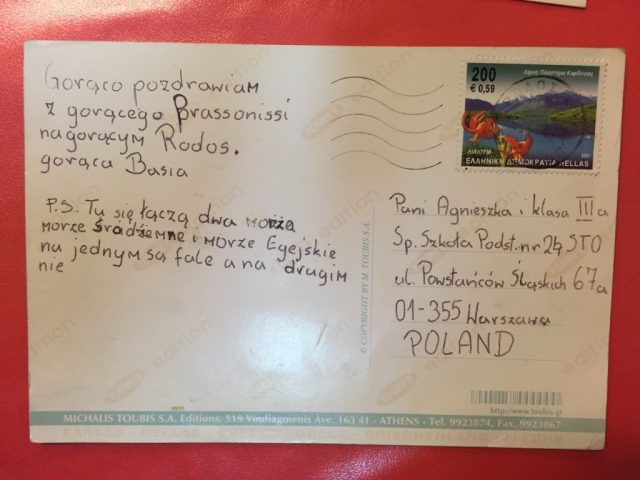 Gorąco pozdrawiam
z gorącego Prassonissi
na gorącym Rodos.
gorąca Basia
P.S. Tu się łączą dwa morza
morze Śródziemne i morze Egejskie
na jednym są fale a na drugim
nie
200
€ 0,59
Λίμνη Πλαστήρα Καρδίτσας
ΛΙΛΙΟΥΜ
2001
ΕΛΛΗΝΙΚΗ ΔΗΜΟΚΡΑΤΙΑ HELLAS
Pani Agnieszka i klasa III a
Sp. Szkoła Podst. nr 24 STO
ul. Powstańców Śląskich 67a
01-355 Warszawa
POLAND
© COPYRIGHT BY M. TOUBIS S.A.
http://www.toubis.gr
MICHALIS TOUBIS S.A. Editions, 519 Vouliagmenis Ave. 163 41 - ATHENS - Tel. 9923874, Fax. 9923867